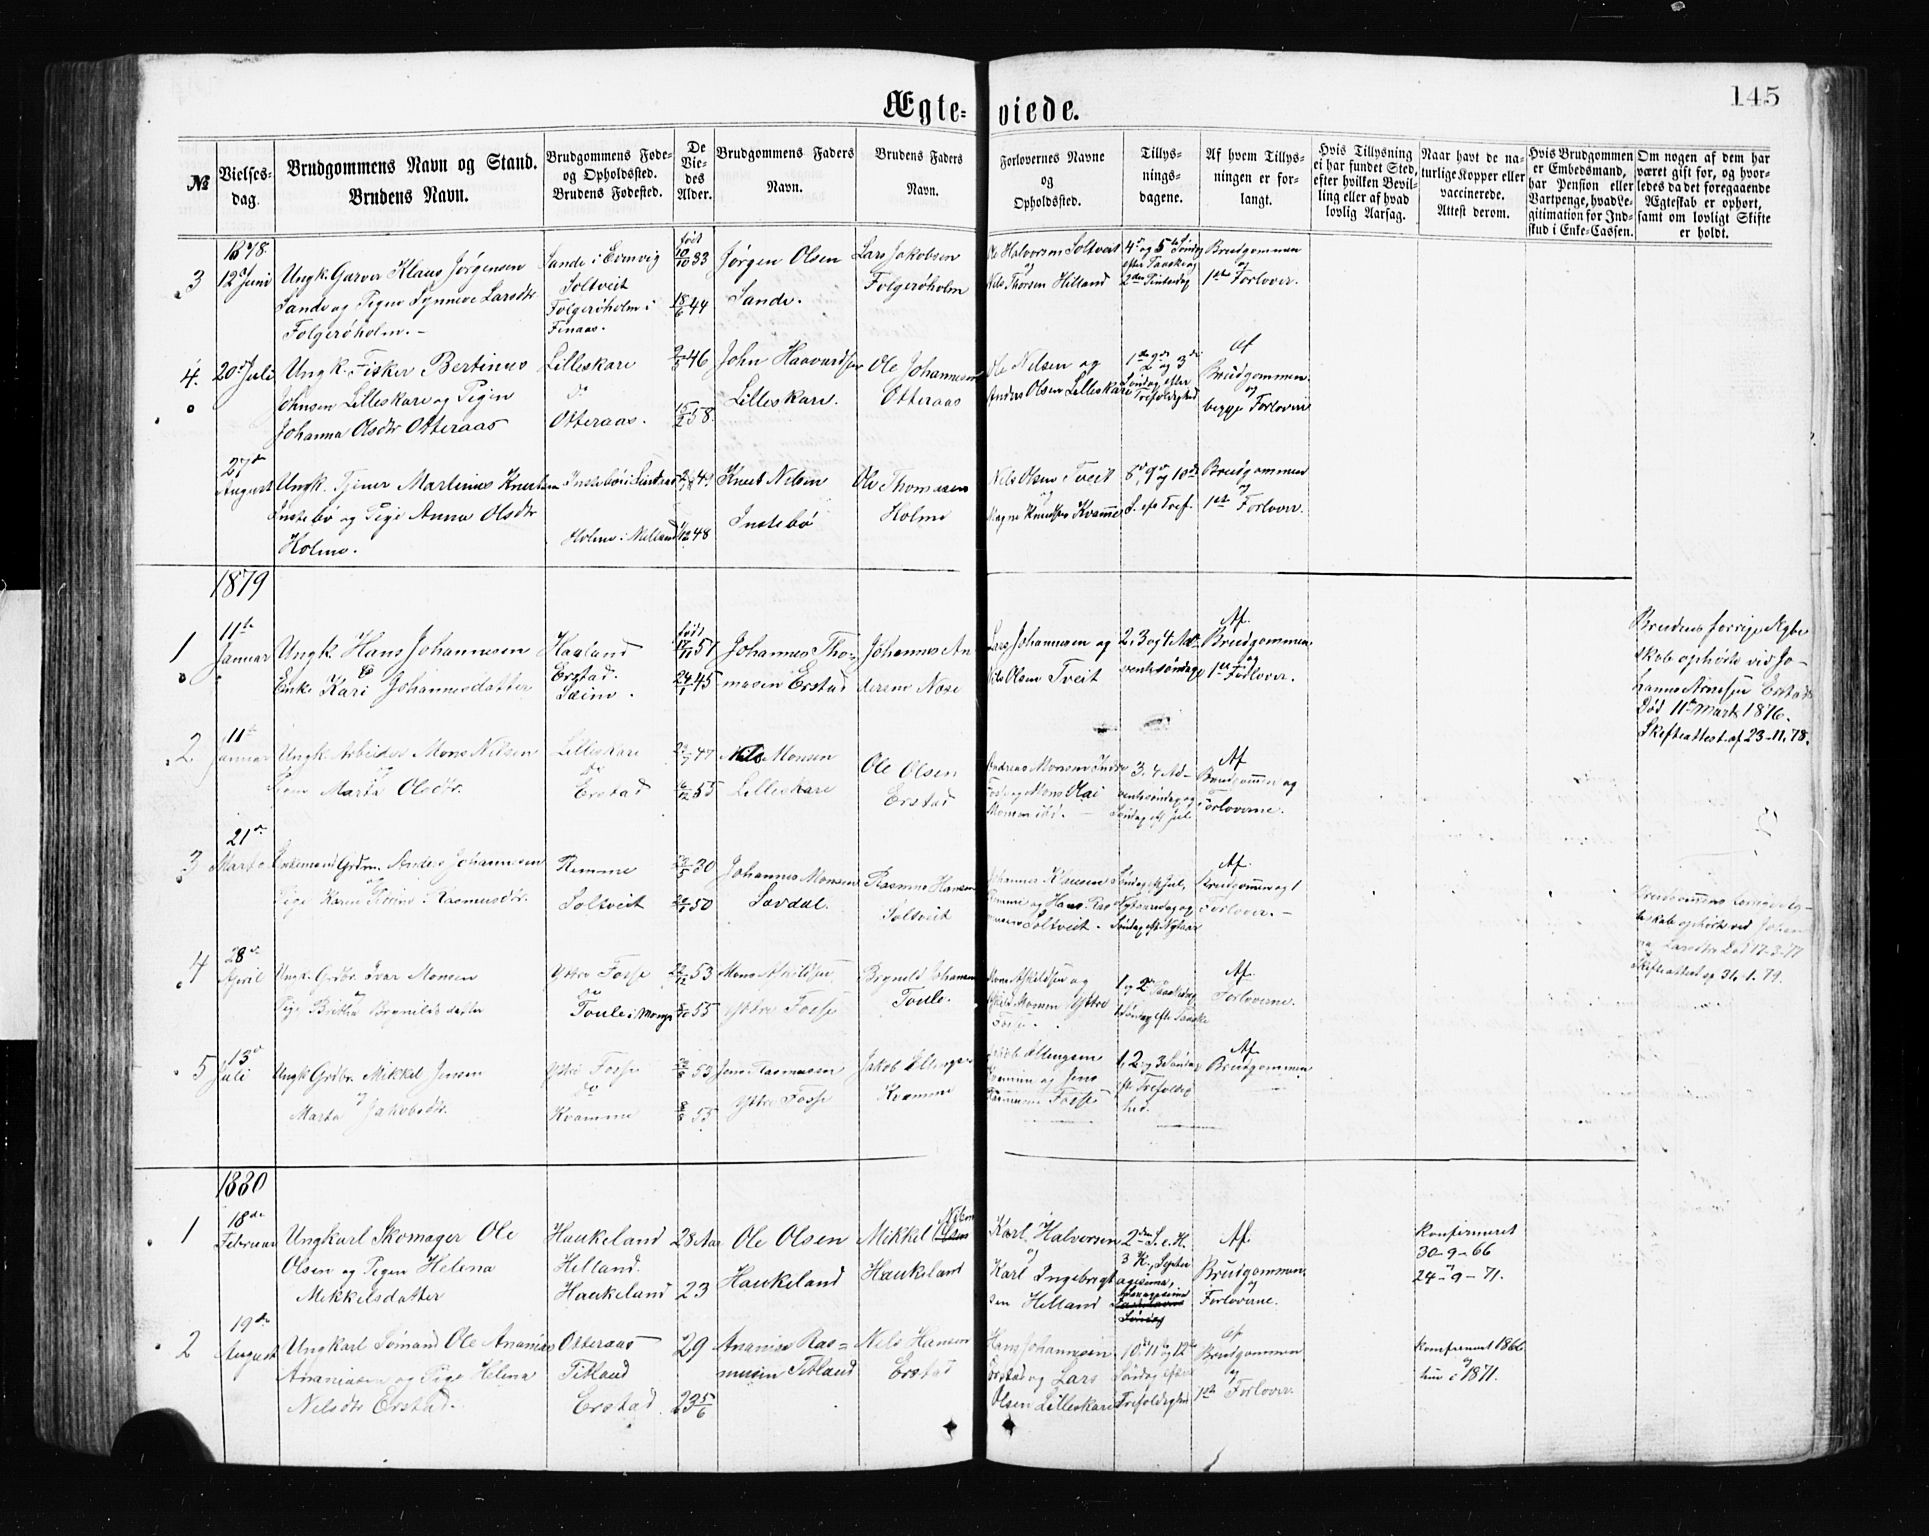 145
Ægte-
viede.
№
Vielses-
dag.
Brudgommens Navn og Stand.
Brudens Navn.
Brudgommens Føde-
og Opholdssted.
Brudens Fødested.
De
Vie-
des
Alder.
Brudgommens Faders
Navn.
Brudens Faders
Navn.
Forlovernes Navne
og
Opholdssted.
Tillys-
nings-
dagene.
Af hvem Tillys-
ningen er for-
langt.
Hvis Tillysning
ei har fundet Sted,
efter hvilken Bevil-
ling eller af hvad
lovlig Aarsag.
Naar havt de na-
turlige Kopper eller
vaccinerede.
Attest derom.
Hvis Brudgommen
er Embedsmand,
har Pension eller
Vartpenge, hvad Le-
gitimation for Ind-
skud i Enke-Cassen.
Om nogen af dem har
været gift for, og hvor-
ledes da det foregaaende
Ægteskab er ophørt,
samt om lovligt Skifte
er holdt.
1878.
3
12 Juni
Ungk. Garver Klaus Jørgensen
Sande og Pigen Synneve Larsdtr
Folgerøholm.
Sande i Evinvig
Soltveit
Folgerøholm i
Finaas.
født
10/10 33
18/6 44
Jørgen Olsen
Sande.
Lars Jakobsen
Folgerøholm
Halvorsen Soltveit
og
Nils Thorsen Hilland
4de og 5te Søndag
efter Paaske og
2den Pintsedag
Brudgommen
og
1ste Forlover.
4.
20de Juli
Ungk. Fisker Bertinus
Johnsen Lilleskare og Pigen
Johanna Olsdtr Otteraas
Lilleskare
do
Otteraas.
46
15/2 58.
John Haavardsen
Lilleskare.
Ole Johannesen
Otteraas
Ole Nilsen og
Anders Olsen Lilleskare
1ste 2de og 3de
Søndag efter
Trefoldighed
Af
Brudgommen
og
begge Forlovere
27de
August
Ungk. Tjener Martinus Knutsen
Instebø og Pige Anna Olsdtr
Holme.
Instebø i Lindaas
Holme i Mæland
48
Knut Nilsen
Instebø
Ole Thomasen
Holme
Nils Olsen Tveit
og
Magne Knudsen Kvamme
8, 9 og 10de
S. eft. Tref.
Brudgommen
og
1ste Forlover.
1879
1
11te
Januar
Ungk. Hans Johannesen
og
Enke Kari Johannesdatter
Haaland
Erstad.
Sæim.
født
51
24/1 45
Johannes Tho-
masen Erstad
Johannes An
dersen Nose
Lars Johannesen og
Nils Olsen Tveit
2, 3 og 4 Ad-
ventssøndag
Af
Brudgommen
og
1ste Forlover.
Brudens forrige Ægte
skab ophørte ved Jo-
hannes Arnesen Erstads
Død 11te Marts 1876.
Skifteattest af 23-11.78.
2
11te
Januar
Ungk. Arbeider Mons Nilsen
og
Marta Olsdtr.
Lilleskare
do
Erstad
47
55
Nils Monsen
Lilleskare
Ole Olsen
Erstad
Andreas Monsen Indre
Fosse og Mons
Monsen
3. 4 Ad-
ventssøndag og
Søndag eft. Jul
Af
Brudgommen og
Forloverne.
3
21de
Marts
Enkemand Grdm. Anders Johannesen
og
Pige Karen Rasmusdtr.
Remme
Soltveit
30
50
Johannes Monsen
Løvdal.
Rasmus Hansen
Soltveit
Johannes Klausen
Remme og Hans Ras
musen Soltveit.
Søndag eft. Jul,
Nytaarsdag og
Søndag eft. Nytaar
Af
Brudgommen og 1
Forlover.
Brudgommens forrige Æg-
teskab ophørte ved Johan
na Larsdtr Død 17-3-77
Skifteattest af 31-1.79.
4
28de
April
Ungk. Grdbr. Ivar Monsen
og
Pige Britha Brynilds datter
Ystre Fosse
do
Toule i Mange
53
55
Mons Askildsen
Ystre Fosse
Brynild Johannesen
Toule.
Mons Askildsen og
Askild Monsen Ystre
Fosse.
1 og 2de Paaskedag
1 Søndag eft. Paaske
Af
Forloverne.
5
13de
Juli
Ungk. Grdbr. Mikkel Jensen
og
Marta Jakobsdtr.
Ystre Fosse
do
Kvamme
53
55
Jens Rasmusen
Ystre Fosse
Jakob Ellingsen
Kvamme
Jakob Ellingsen
Kvamme og Jens
Rasmusen Fosse
1, 2 og 3 Søndag
eft. Trefoldig
hed.
Af
Brudgommen
1880
1
18de
Februar
Ungkarl Skomager Ole
Olsen og Pigen Helena
Mikkelsdatter
Haukeland
Helland.
Haukeland
28 Aar
23
Ole Olsen
Haukeland
Mikkel Nilsen
Haukeland
Karl Halversen
og
Karl Ingebrigt
sen Helland
2den S. e. H.
3 K., Septua
gesima,
Søndag
Af
Brudgommen
og
Forloverne.
konfirmeret
30-9-66
og
24-9-71.
2
19de
August
Ungkarl Sømand Ole Ananias
Ananiasen og Pige Helena
Nilsdtr Erstad.
Otteraas
Titland
Erstad
29
23 5/6
Ananias Ras=
musen Titland
Nils Hansen
Erstad
Hans Johannesen
Erstad og Lars
Olsen Lilleskare
10de 11te og 12te
Søndag efter
Trefoldighed
Af
Brudgommen
og
1ste Forlover.
konfirmeret 1866
og
hun i 1871.